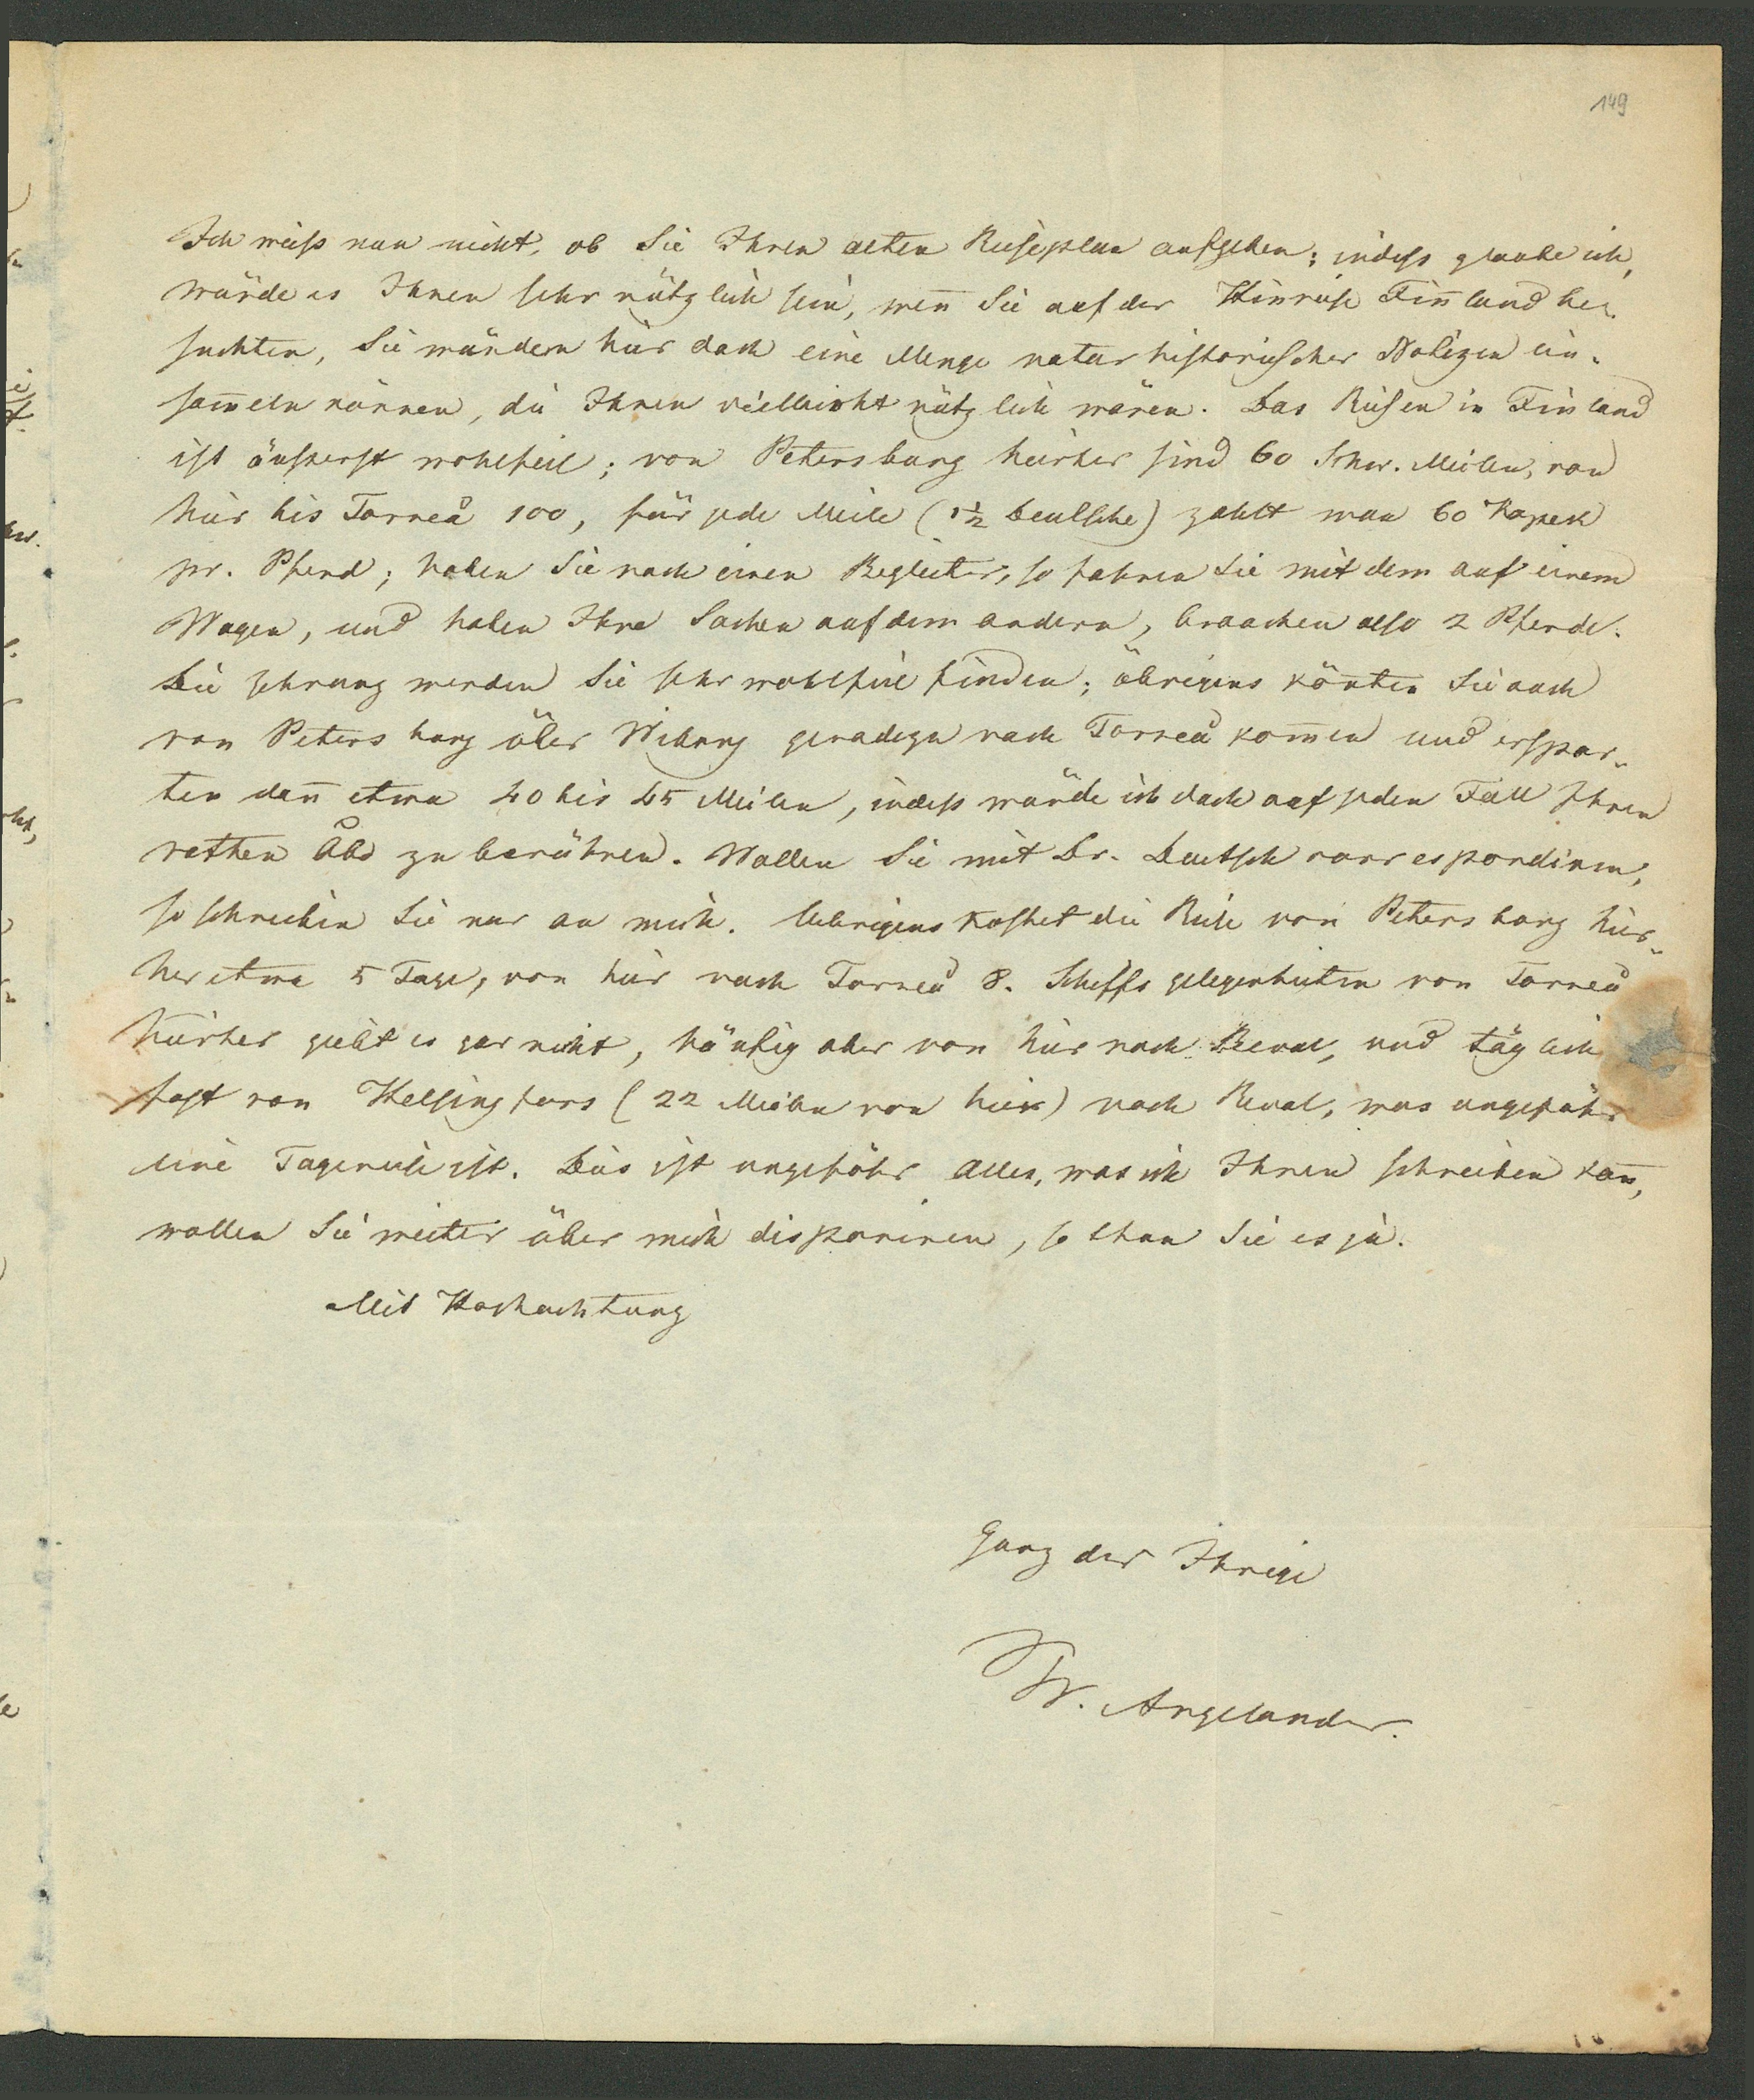 149
Ich weiß nun nicht, ob Sie Ihren alten Reiseplan aufgeben; indeß glaube ich,
würde es Ihnen sehr nützlich sein, weñ Sie auf der Hinreise Fiñland be-
suchten, Sie würden hier doch eine Menge naturhistorischer Notizen ein-
sam̄eln können, die Ihnen vielleicht nützlich wären. Das Reisen in Finland
ist äußerst wohlfeil; von Petersburg hierher sind 60 Schw. Meilen, von
hier bis Torneå 100, für jede Meile (1½ Deutsche) zahlt man 60 Kopek
pr. Pferd; haben Sie noch einen Begleiter, so fahren Sie mit dem auf einem
Wagen, und haben Ihre Sachen auf dem andern, brauchen also 2 Pferde.
Die Zehrung werden Sie sehr wohlfeil finden; übrigens könten Sie auch
von Petersburg über Wiburg geradezu nach Torneå kom̄en und erspar-
ten dañ etwa 40 bis 45 Meilen, indeß würde ich doch auf jeden Fall Ihnen
rathen Åbo zu berühren. Wollen Sie mit Dr. Deutsch correspondiren,
so schreiben Sie nur an mich. Uebrigens kostet die Reise von Petersburg hier-
her etwa 5 Tage, von hier nach Torneå 8. Schiffsgelegenheiten von Torneå
hierher giebt es gar nicht, häufig aber von hier nach Reval, und täglich
fast von Helsingfors (22 Meilen von hier) nach Reval, was ungefähr
eine Tagereise ist. Dies ist ungefähr alles, was ich Ihnen schreiben kañ,
wollen Sie weiter über mich disponiren, so thun Sie es ja.
Mit Hochachtung
Ganz der Ihrige
Fr. Argelander.